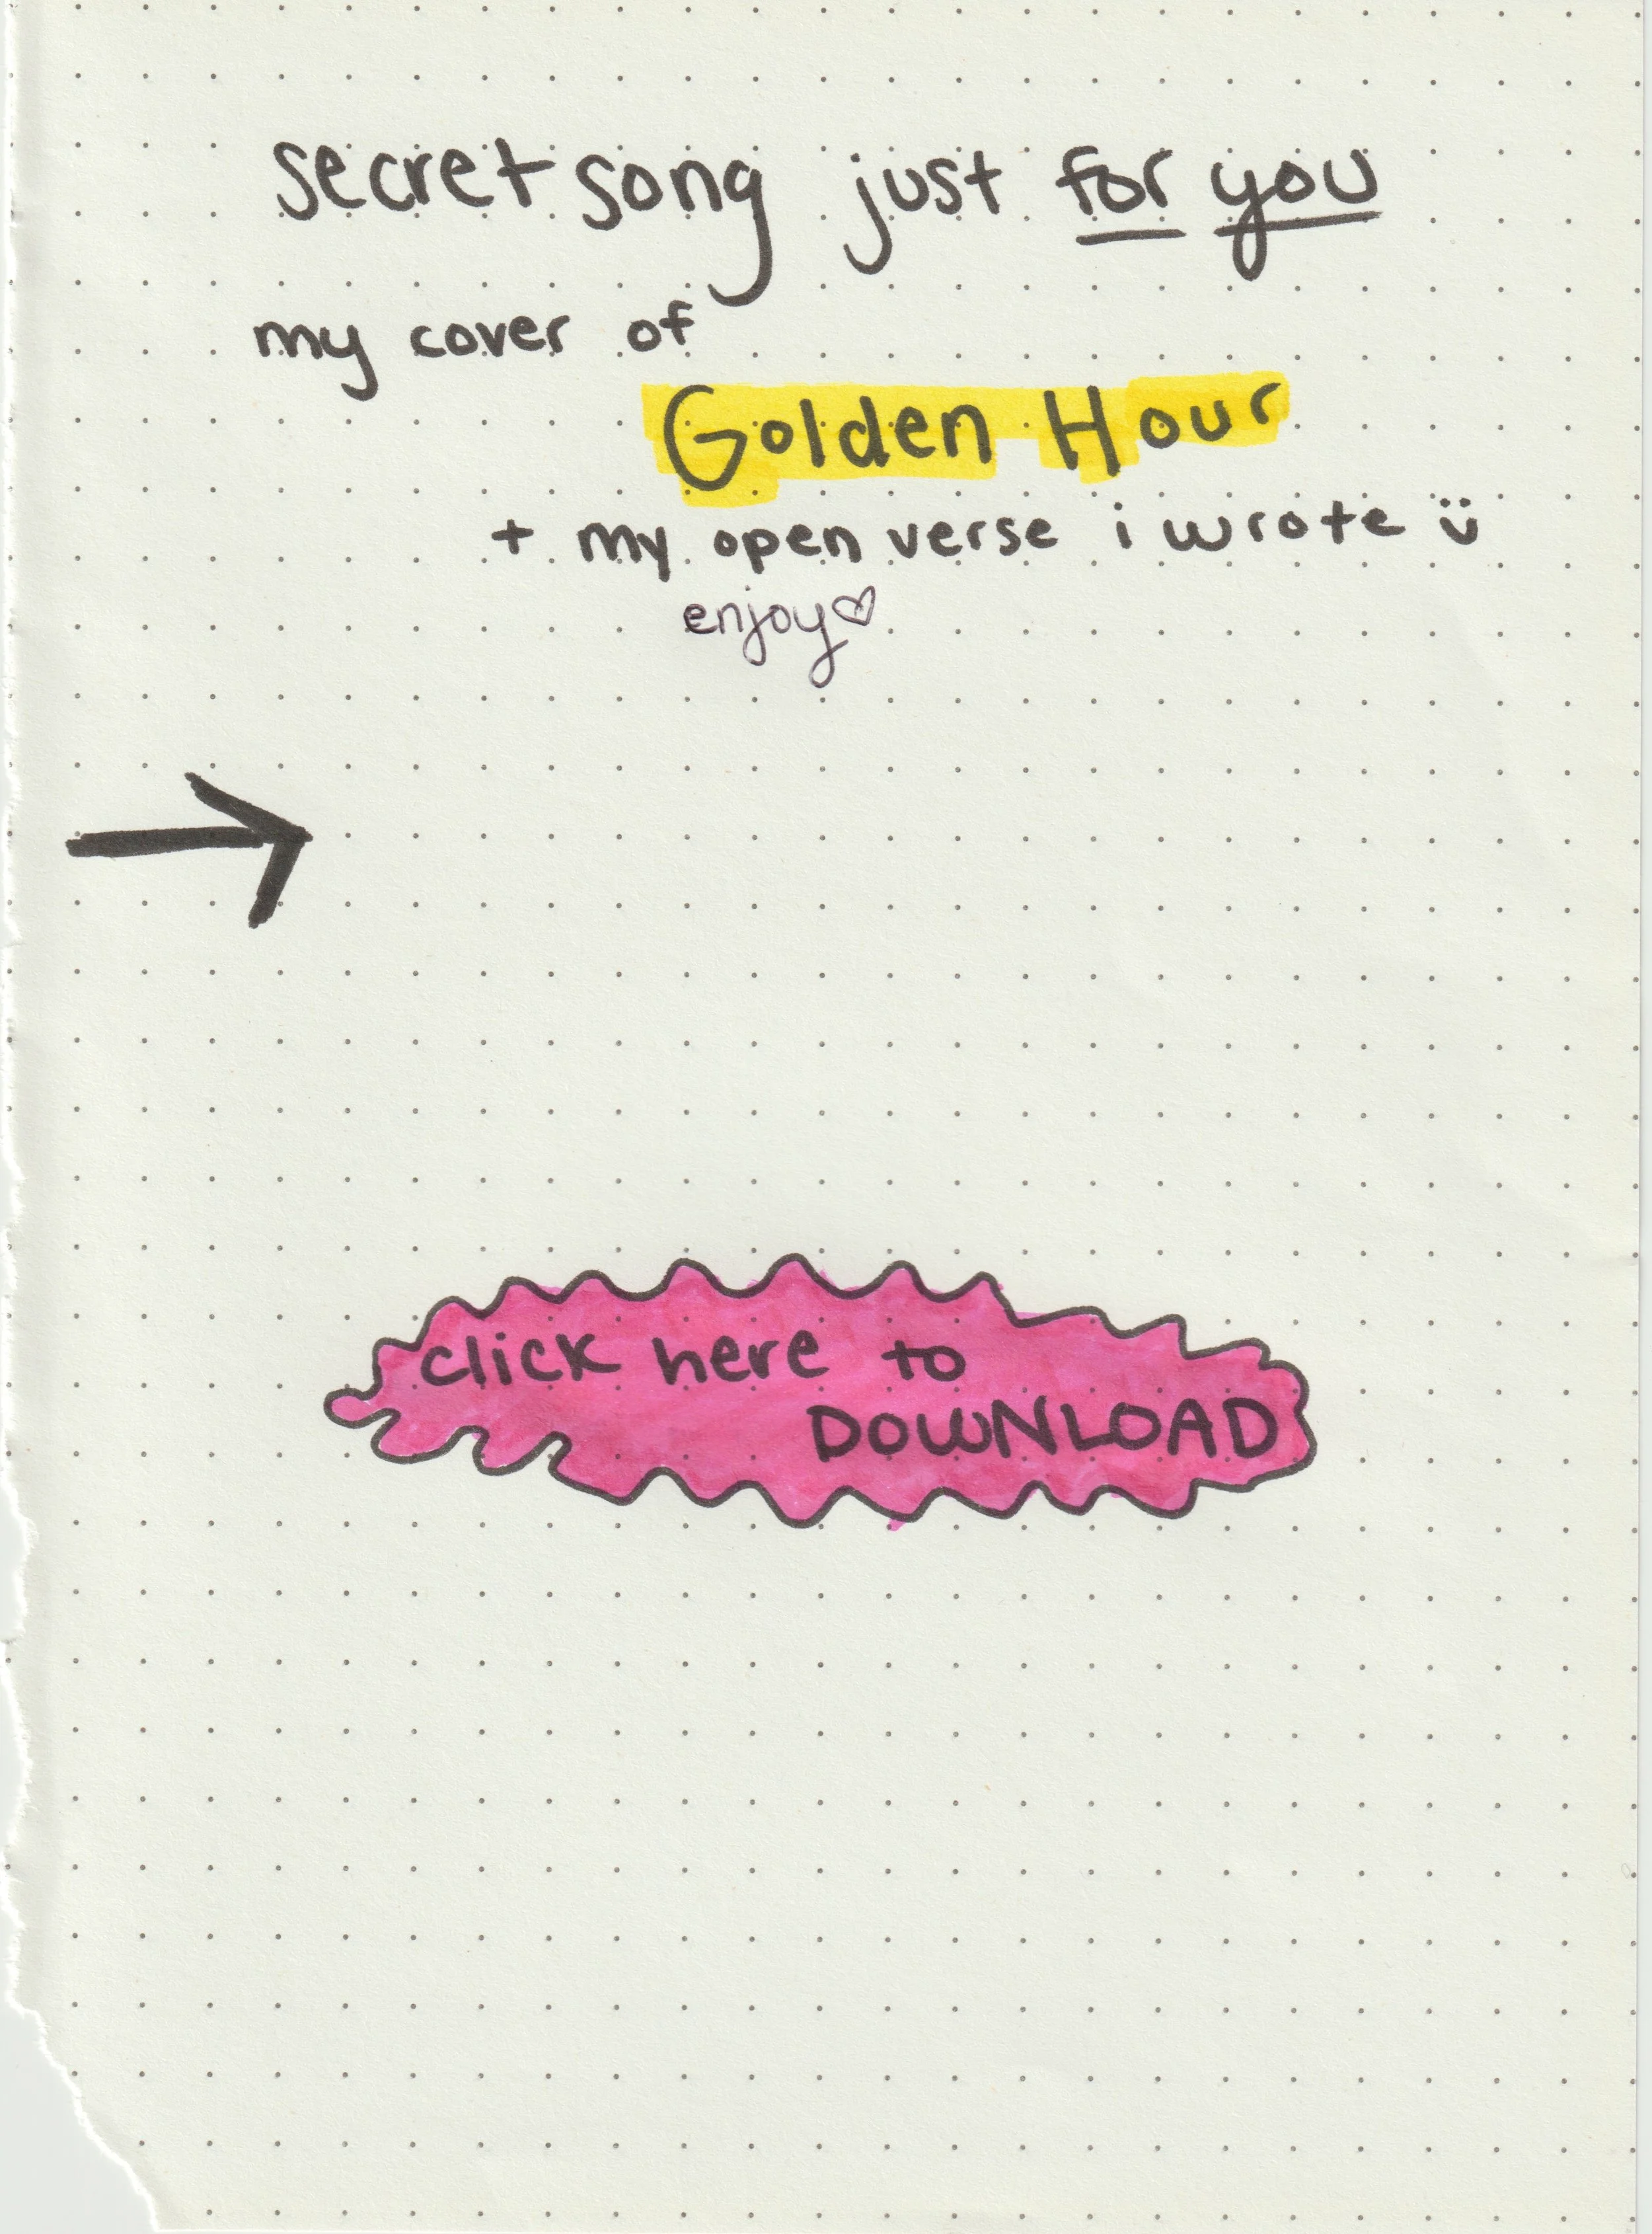 secret song just for you
my cover of
Golden Hour
+ my open verse i wrote ü
enjoy♡
click here to
DOWNLOAD